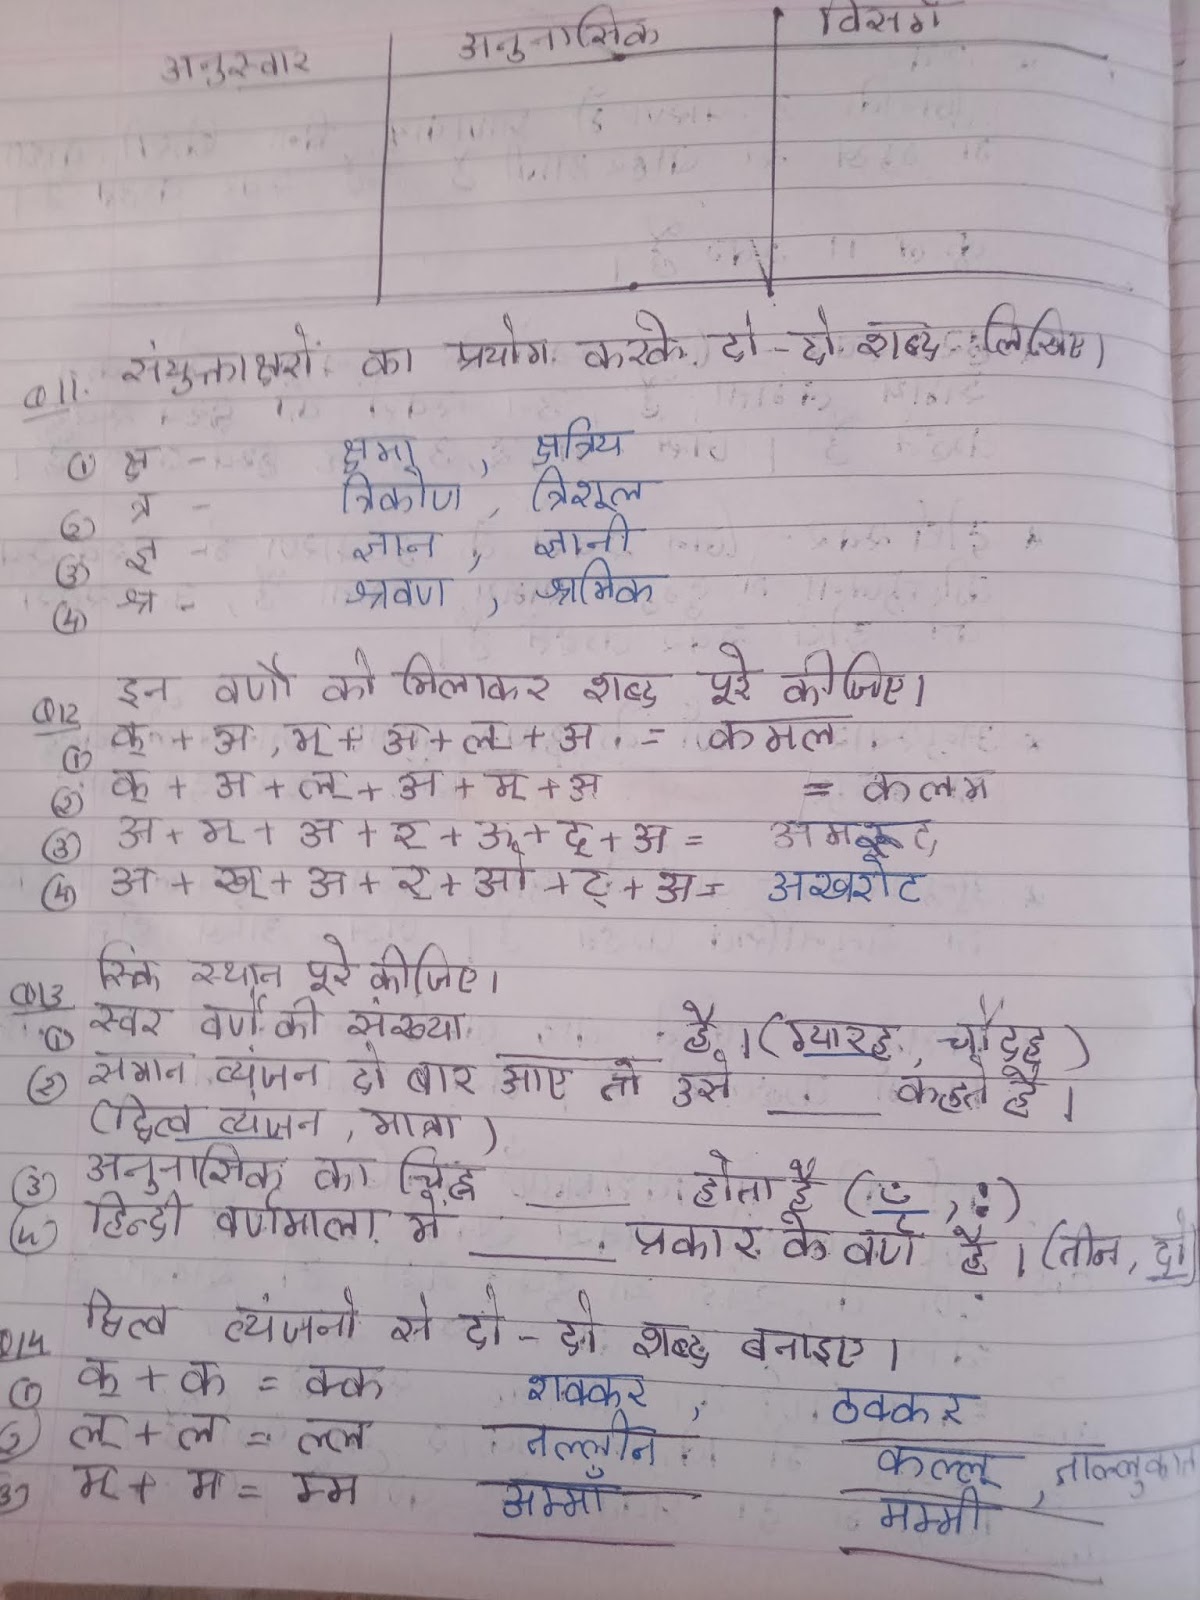 अनुस्वार अनुनासिक विसर्ग
Q11. संयुक्ताक्षरों का प्रयोग करके दो-दो शब्द लिखिए।
① क्ष - क्षमा, क्षत्रिय
② त्र - त्रिकोण, त्रिशूल
③ ज्ञ - ज्ञान, ज्ञानी
④ श्र - श्रवण, श्रमिक
Q12 इन वर्णों को मिलाकर शब्द पूरे कीजिए।
① क् + अ, म् + अ + ल् + अ = कमल
② क् + अ + ल् + अ + म् + अ = कलम
③ अ + म् + अ + र् + ऊ + द् + अ = अमरूद
④ अ + ख् + अ + र् + ओ + ट् + अ = अखरोट
Q13 रिक्त स्थान पूरे कीजिए।
① स्वर वर्ण की संख्या ______ है। (ग्यारह, चौदह)
② समान व्यंजन दो बार आए तो उसे ______ कहते हैं।
(द्वित्व व्यंजन, मात्रा)
③ अनुनासिक का चिह्न ______ होता है (ँ, :)
④ हिन्दी वर्णमाला में ______ प्रकार के वर्ण है। (तीन, दो)
Q14 द्वित्व व्यंजनो से दो-दो शब्द बनाइए।
① क् + क = क्क शक्कर, ठक्कर
② ल् + ल = ल्ल कल्लू,
③ म् + म = म्म अम्माँ मम्मी